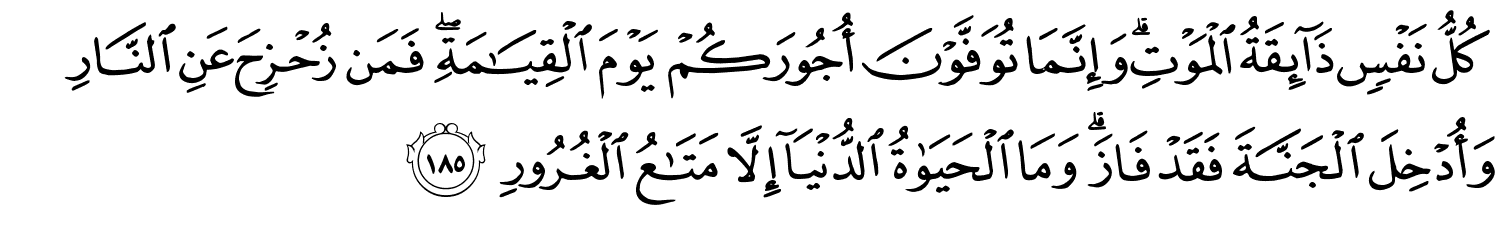 كُلُّ نَفْسٍ ذَآئِقَةُ ٱلْمَوْتِ ۗ وَإِنَّمَا تُوَفَّوْنَ أُجُورَكُمْ يَوْمَ ٱلْقِيَـٰمَةِ ۖ فَمَن زُحْزِحَ عَنِ ٱلنَّارِ
وَأُدْخِلَ ٱلْجَنَّةَ فَقَدْ فَازَ ۗ وَمَا ٱلْحَيَوٰةُ ٱلدُّنْيَآ إِلَّا مَتَـٰعُ ٱلْغُرُورِ ١٨٥